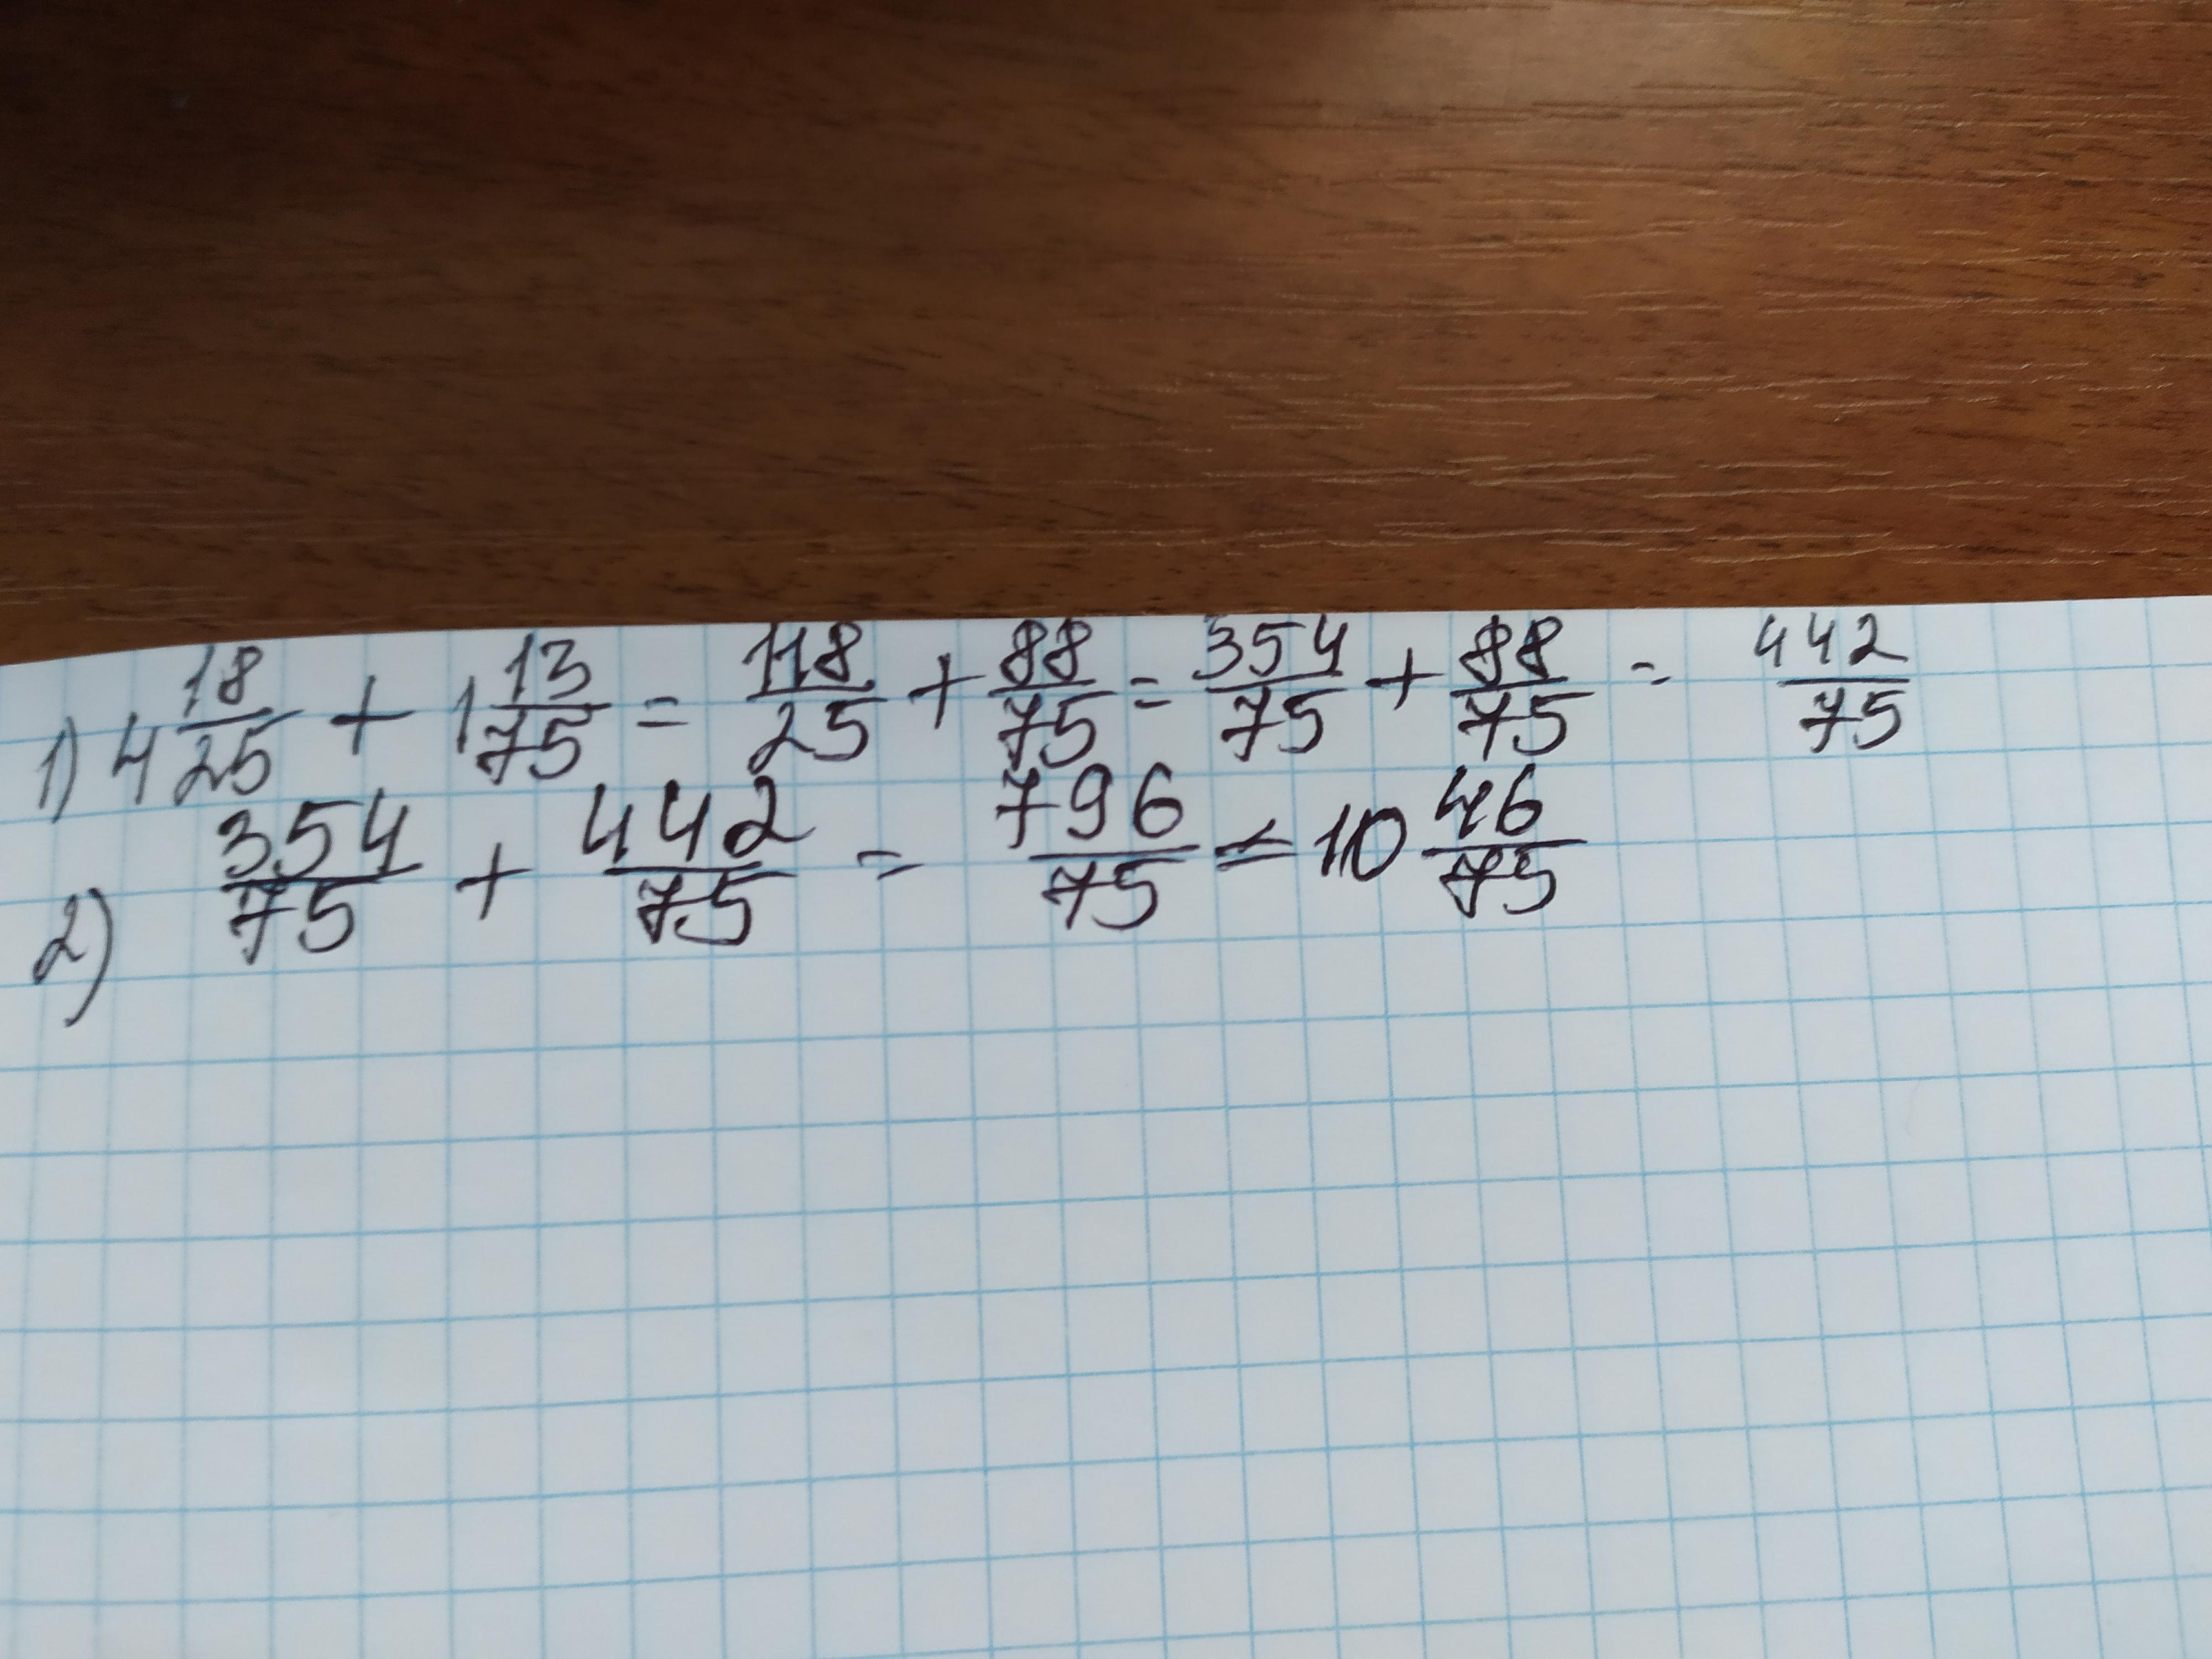 1) 4 18/25 + 1 13/75 = 118/25 + 88/75 = 354/75 + 88/75 = 442/75
2) 354/75 + 442/75 = 796/75 = 10 46/75